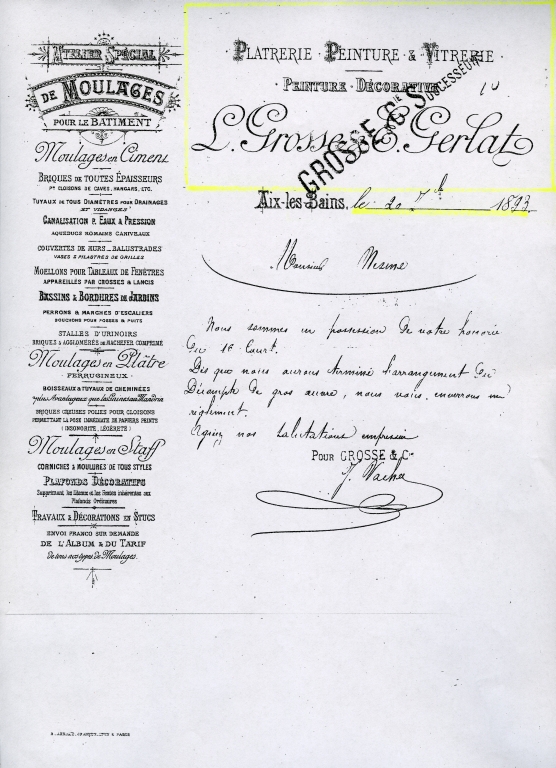 ATELIER SPÉCIAL
DE MOULAGES
POUR LE BATIMENT
Moulages en Ciment
BRIQUES DE TOUTES ÉPAISSEURS
Pr CLOISONS DE CAVES, HANGARS, ETC.
TUYAUX DE TOUS DIAMÈTRES POUR DRAINAGES
ET VIDANGES
CANALISATION P. EAUX À PRESSION
AQUEDUCS ROMAINS CANIVEAUX
COUVERTURES DE MURS - BALUSTRADES
VASES & PILASTRES DE GRILLES
MOELLONS POUR TABLEAUX DE FENÊTRES
APPAREILLÉS PAR GROSSES & LANCIS
BASSINS & BORDURES DE JARDINS
PERRONS & MARCHES D'ESCALIERS
BOUCHONS POUR FOSSES & PUITS
STALLES D'URINOIRS
BRIQUES & AGGLOMÉRÉS DE MACHEFER COMPRIMÉ
Moulages en Plâtre
FERRUGINEUX
BOISSEAUX & TUYAUX DE CHEMINÉES
BRIQUES CREUSES POLIES POUR CLOISONS
PERMETTANT LA POSE IMMÉDIATE DE PAPIERS PEINTS
(INSONORITÉ, LÉGÈRETÉ)
Moulages en Staff
CORNICHES & MOULURES DE TOUS STYLES
PLAFONDS DÉCORATIFS
Supprimant les Liteaux et les Fentes inhérentes aux
Plafonds Ordinaires
TRAVAUX & DÉCORATIONS EN STUCS
ENVOI FRANCO SUR DEMANDE
DE L'ALBUM & DU TARIF
de tous nos types de Moulages.
PLATRERIE · PEINTURE & VITRERIE
PEINTURE · DÉCORATIVE
L. Grosse & E. Gerlat
GROSSE & Cie SUCCESSEURS
AIX-LES-BAINS, le 20 7bre 1893
Monsieur
Nous sommes en possession de votre honorée
du 16 Court.
Dès que nous aurons terminé l'arrangement du
Décompte de gros œuvre, nous vous enverrons un
règlement.
Agréez nos salutations empressées
POUR GROSSE & Cie